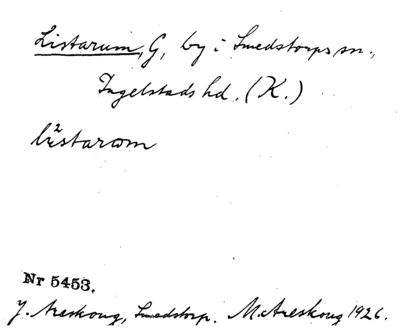 Listarum, G, by i Smedstorps sn.,
Ingelstads hd. (K.)
Nr 5453.
J. Areskoug, Smedstorp. M. Areskoug 1926.